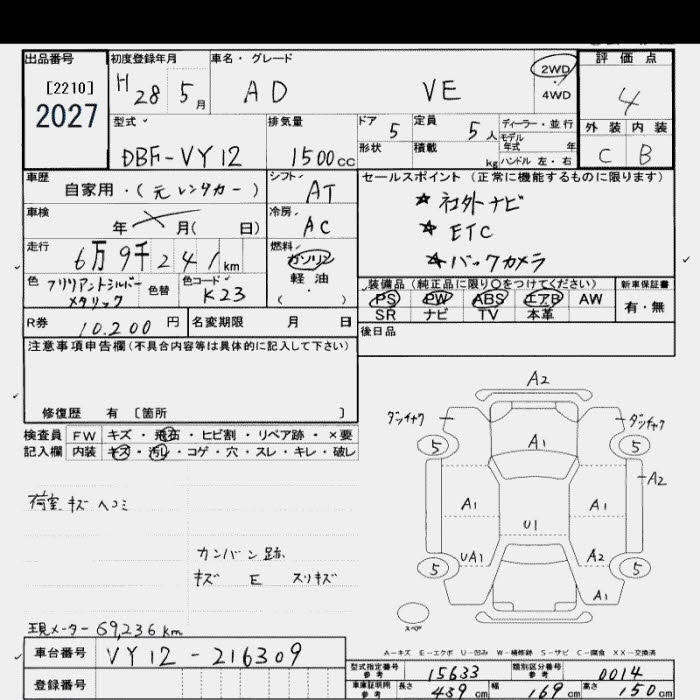 出品番号 初度登録年月 車名・グレード 評価点
[2210] H 28 5月 AD VE 2WD 4
2027 4WD
型式 排気量 ドア 5 定員 5人 ディーラー・並行 外装 内装
モデル年式 年
DBF-VY12 1500cc 形状 積載 kg ハンドル 左・右 C B
車歴 自家用・(元レンタカー) シフト AT セールスポイント (正常に機能するものに限ります)
★社外ナビ
車検 年 月( 日) 冷房 AC ★ETC
走行 6万9千241km 燃料 ガソリン ★バックカメラ
軽油
( )
色 ブリリアントシルバーメタリック 色替 色コード K23
装備品(純正品に限り○をつけてください) 新車保証書
PS PW ABS エアB AW 有・無
SR ナビ TV 本革
R券 10.200円 名変期限 月 日 後日品
注意事項申告欄(不具合内容等は具体的に記入して下さい)
修復歴 有 [箇所 ]
検査員 FW キズ・飛石・ヒビ割・リペア跡・×要
記入欄 内装 キズ・汚レ・コゲ・穴・スレ・キレ・破レ
荷室キズヘコミ
カンバン跡
キズ E スリキズ
現メーター 69,236km
A2
ダッチャク ダッチャク
5 A1 5
A2
A1 A1
U1
UA1 A2
5 5
A1
スペア
A-キズ E-エクボ U-凹み W-補修跡 S-サビ C-腐食 XX-交換済
車台番号 VY12-216309
登録番号
型式指定番号 参考 15633 類別区分番号 参考 0014
車庫証明用 参考 長さ 439cm 幅 169cm 高さ 150cm